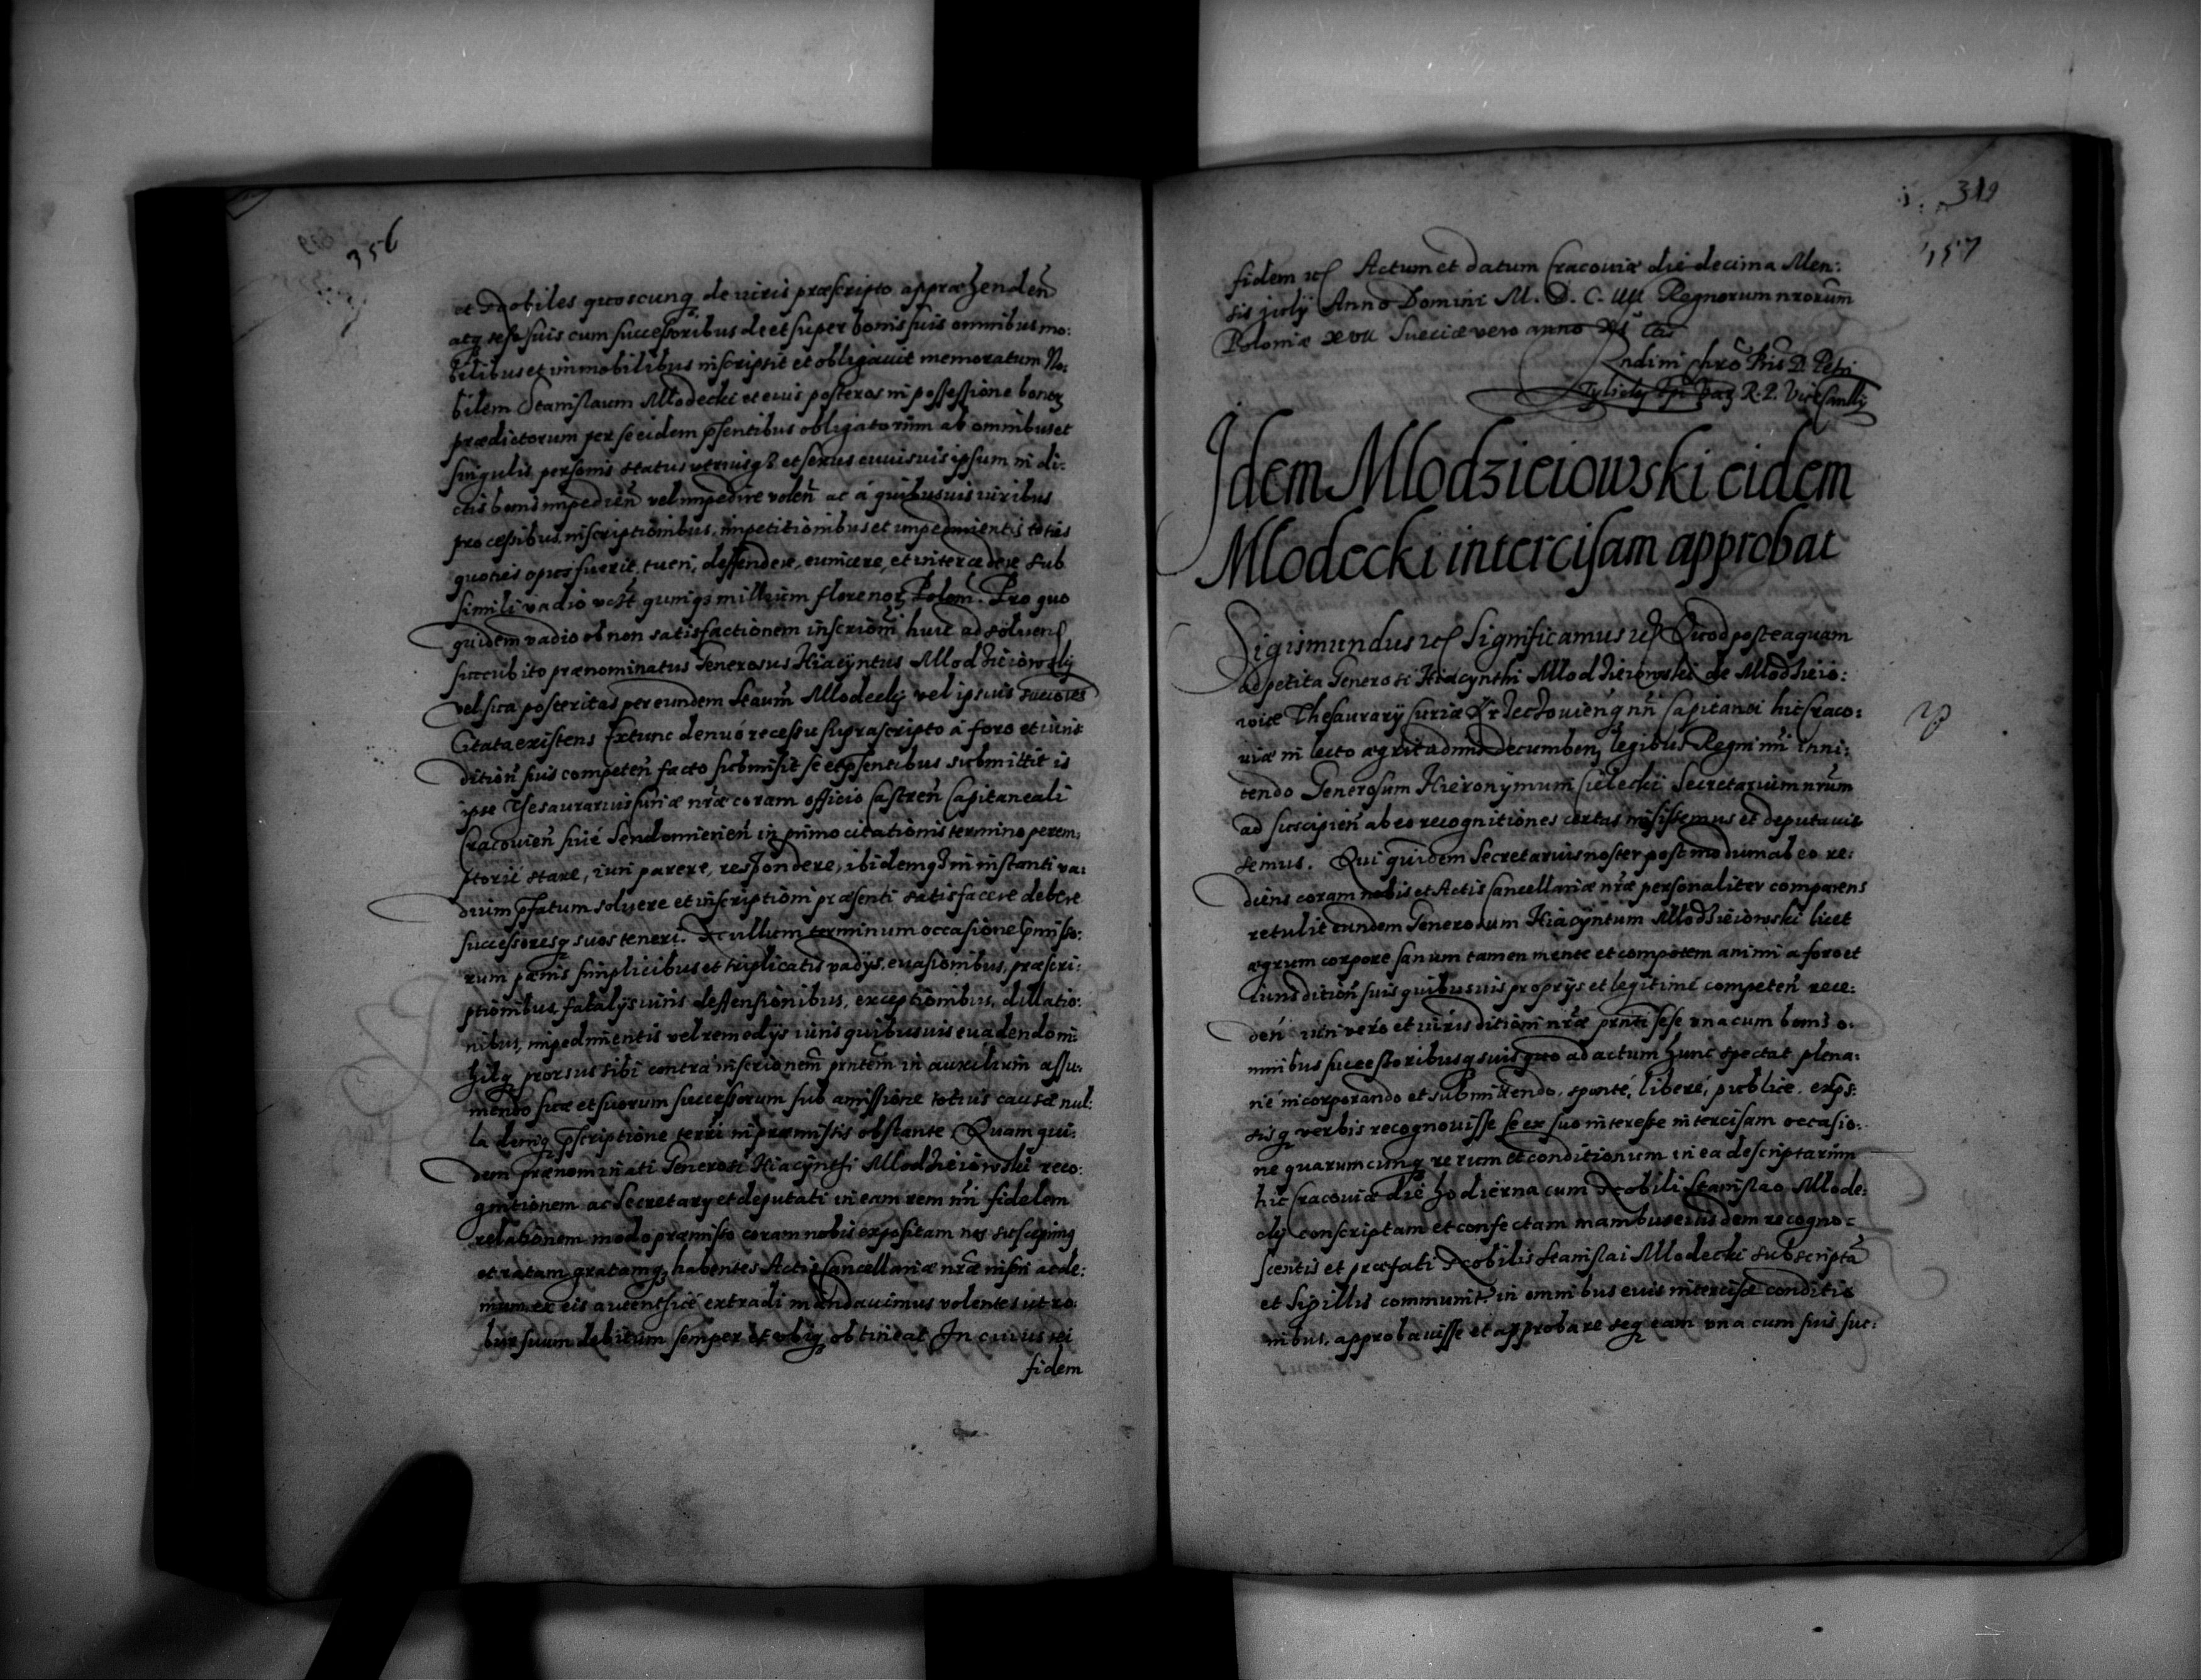 356
et Nobiles quoscunq de iuris præscripto appræhenden
atq sese suis cum successoribus de et super bonis suis omnibus mo:
bilibus et immobilibus inscripsit et obligavit memoratum No:
bilem Stanislaum Mlodecki et eius posteros in possessione bonoꝝ
prædictorum per se eidem pſentibus obligatorum ab omnibus et
singulis personis status utriusq et sexus euiusuis ipsum in di:
ctis bonis impedien vel impedire volen ac a quibusuis iuribus
processibus, inscriptionibus, impetitionibus et impedimentis toties
quoties opus fuerit, tueri, deffendere, euincere, et intercædere sub
simili vadio vet quinq millium florenoꝝ Polon. Pro quo
quidem vadio ob non satisfactionem inscriom huic ad soluend
succubito prænominatus Generosus Hiacyntus Mlodzieiowsky
vel sua posteritas per eundem Staum Mlodecky vel ipsius succores
Citata existens Extunc denuo recessu suprascripto a foro et iuris
dition suis competen facto submisit se et pſentibus submittit is
ipse Thesaurarius Curiæ nræ coram officio Castren Capitaneali
Cracouien siue Sendomirien in primo citationis termino perem:
ptorie stare, iuri parere, respondere, ibidemq in instanti va:
dium pſatum soluere et inscriptioni præsenti satisfacere debere
successoresq suos teneri. Nullum terminum occasione pmisso:
rum pænis simplicibus et triplicatis vadys, euasionibus, præscri:
ptionibus, fatalys iuris deffensionibus, exceptionibus, dillatio:
nibus, impedimentis vel remedys iuris quibusuis euadendo ni:
hilq prorsus sibi contra inscrionem pntem in auxilium assu:
mendo suæ et suorum successorum sub amissione totius causæ nul:
la deniq pscriptione terri in præmissis obstante Quam qui:
dem prænominati Generosi Hiacynthi Mlodzieiowski reco:
gnitionem ac Secretary et deputati in eam rem nri fidelem
relationem modo præmisso coram nobis expositam nos suscepimq
et ratam gratamq habentes Actis Cancellariæ nræ inseri ac de:
mum ex eis autentice extradi mandauimus volentes ut ro:
bur suum debitum semper et ubiq obtineat In cuius rei
fidem
319
357
fidem etc Actum et datum Cracouiæ die decima Men:
sis july Anno Domini M. D. C. IIII Regnorum nrorum
Poloniæ XVII Sueciæ vero anno
Petri
Tylicky R. P. Vicecancelly
Idem Mlodzieiowski eidem
Mlodecki intercisam approbat
Sigismundus etc Significamus etc Quod posteaquam
ad petita Generosi Hiacynthi Mlodzieiowski de Mlodzieio:
wice Thesaurary Curiæ nri Capitanei hic Craco:
uiæ in lecto ægritudinis decumben legibus Regni nri inni:
tendo Generosum Hieronymum Cielecki Secretarium nrum
ad suscipien ab eo recognitiones certas misissemus et deputauis
semus. Qui quidem Secretarius noster postmodum ab eo re:
diens coram nobis et Actis Cancellariæ nræ personaliter comparens
retulit eundem Generosum Hiacyntum Mlodzieiowski licet
ægrum corpore sanum tamen mente et compotem animi a foro et
iurisdition suis quibusuis proprys et legitime competen rece:
den iuri vero et iurisditioni nræ pnti sese una cum bonis o:
mnibus successoribusq suis quo ad actum hunc spectat plena:
rie incorporando et submittendo, sponte, libere, publice, exps:
sisq verbis recognouisse se ex suo interesse intercisam occasio:
ne quarumcunq rerum et conditionum in ea descriptarum
hic Cracouiæ die hodierna cum Nobili Stanislao Mlode:
cky conscriptam et confectam manibus eiusdem recogno:
scentis et præfati Nobilis Stanislai Mlodecki subscripta
et Sigillis communit in omnibus eius intercisæ conditio
nibus, approbauisse et approbare seq eam una cum suis suc: